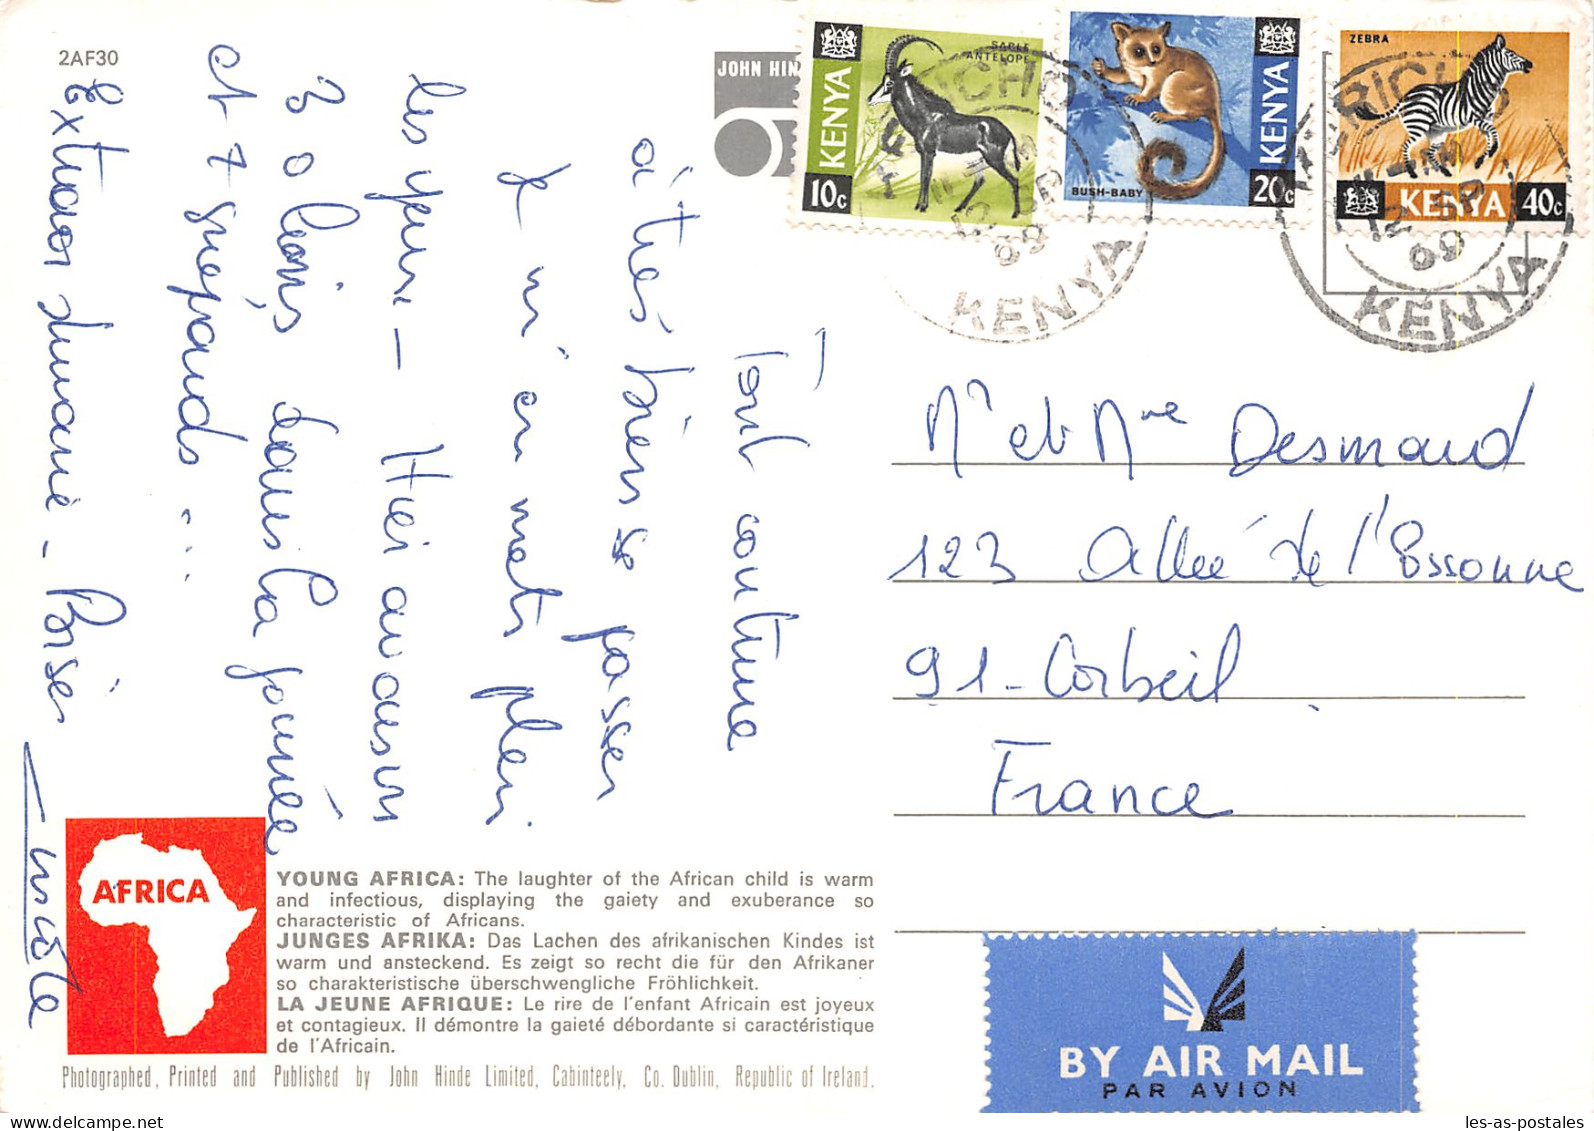 2AF30
JOHN HIN
SABLE
ANTELOPE
KENYA
10c
BUSH-BABY
KENYA
20c
ZEBRA
KENYA
40c
KERICHO
12 SP
69
KENYA
KERICHO
12 SP
69
KENYA
Tout continue
à très bien se passer
Je m'en mets plein
les yeux — Hier avons vu
3 o lions dans la journée
et 7 guépards ...
Extraordinaire - Baisers
Nicole
Mr et Mme Desmaud
123 Allée de l'Essonne
91 - Corbeil
France
AFRICA
YOUNG AFRICA: The laughter of the African child is warm
and infectious, displaying the gaiety and exuberance so
characteristic of Africans.
JUNGES AFRIKA: Das Lachen des afrikanischen Kindes ist
warm und ansteckend. Es zeigt so recht die für den Afrikaner
so charakteristische überschwengliche Fröhlichkeit.
LA JEUNE AFRIQUE: Le rire de l'enfant Africain est joyeux
et contagieux. Il démontre la gaieté débordante si caractéristique
de l'Africain.
Photographed, Printed and Published by John Hinde Limited, Cabinteely, Co. Dublin, Republic of Ireland.
BY AIR MAIL
PAR AVION
les-as-postales